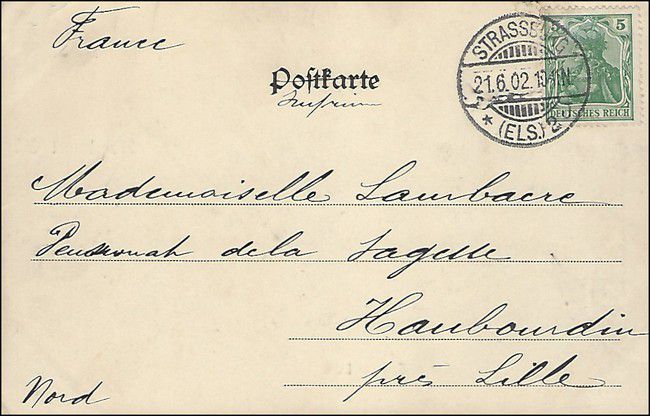 France
Postkarte
STRASSBURG
21.6.02.10-11N.
* (ELS.) 2
5
DEUTSCHES REICH
Mademoiselle Lambaere
Pensionnat de la Sagesse
Haubourdin
près Lille
Nord